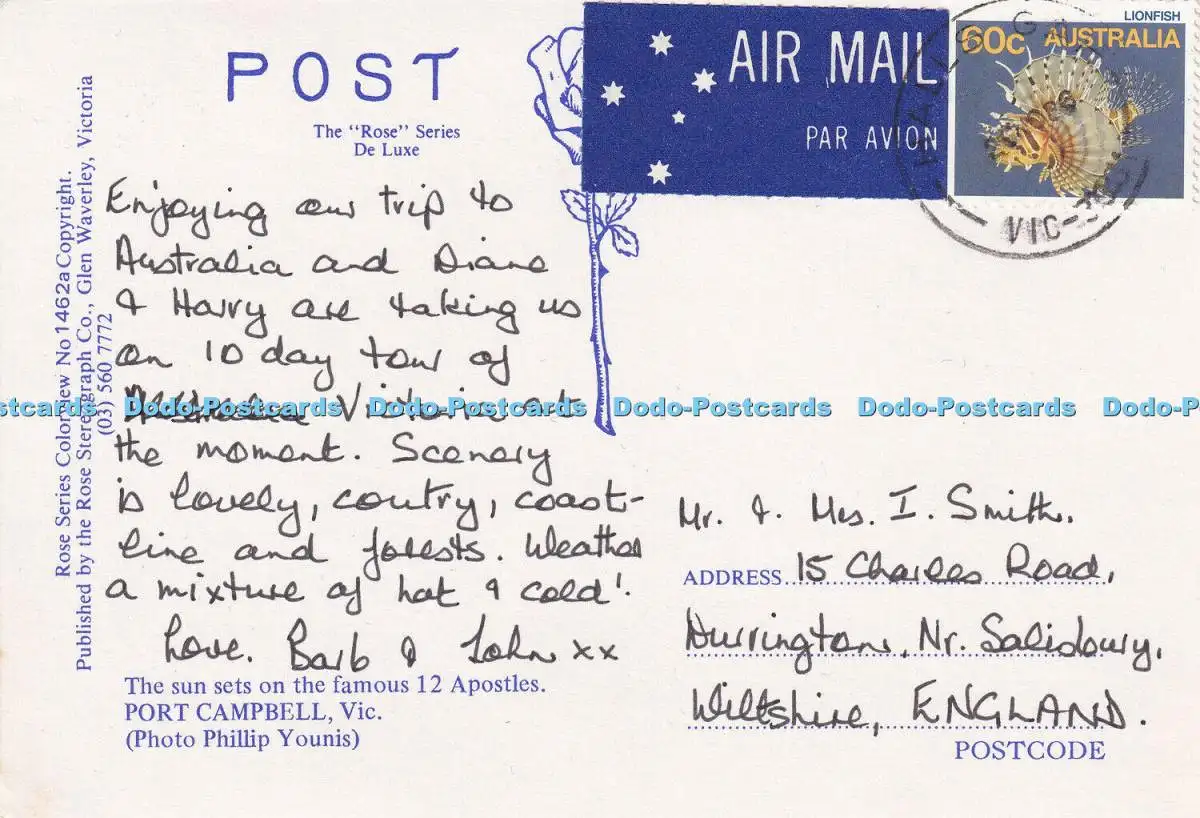 POST
The "Rose" Series
De Luxe
AIR MAIL
PAR AVION
LIONFISH
60c AUSTRALIA
VIC-
Rose Series Colorview No 1462a Copyright.
Published by the Rose Stereograph Co., Glen Waverley, Victoria
(03) 560 7772
Enjoying our trip to
Australia and Diane
& Harry are taking us
on 10 day tour of
Victoria at
the moment. Scenery
is lovely, coutry, coast-
line and forests. Weather
a mixture of hot & cold!
Love. Barb & John xx
The sun sets on the famous 12 Apostles.
PORT CAMPBELL, Vic.
(Photo Phillip Younis)
Mr. & Mrs. I. Smith.
ADDRESS 15 Charles Road,
Durrington, Nr. Salisbury,
Wiltshire, ENGLAND.
POSTCODE
Dodo-Postcards Dodo-Postcards Dodo-Postcards Dodo-Postcards